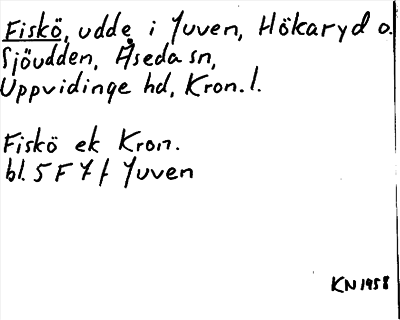 Fiskö, udde i Juven, Hökaryd o.
Sjöudden, Åseda sn,
Uppvidinge hd, Kron. l.
Fiskö ek Kron.
bl. 5 F 7 f Juven
KN 1958